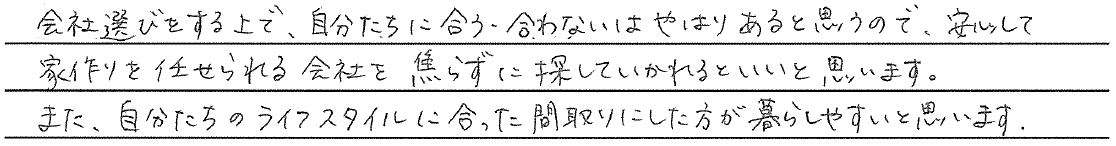 会社選びをする上で、自分たちに合う・合わないはやはりあると思うので、安心して
家作りを任せられる会社を焦らずに探していかれるといいと思います。
また、自分たちのライフスタイルに合った間取りにした方が暮らしやすいと思います.